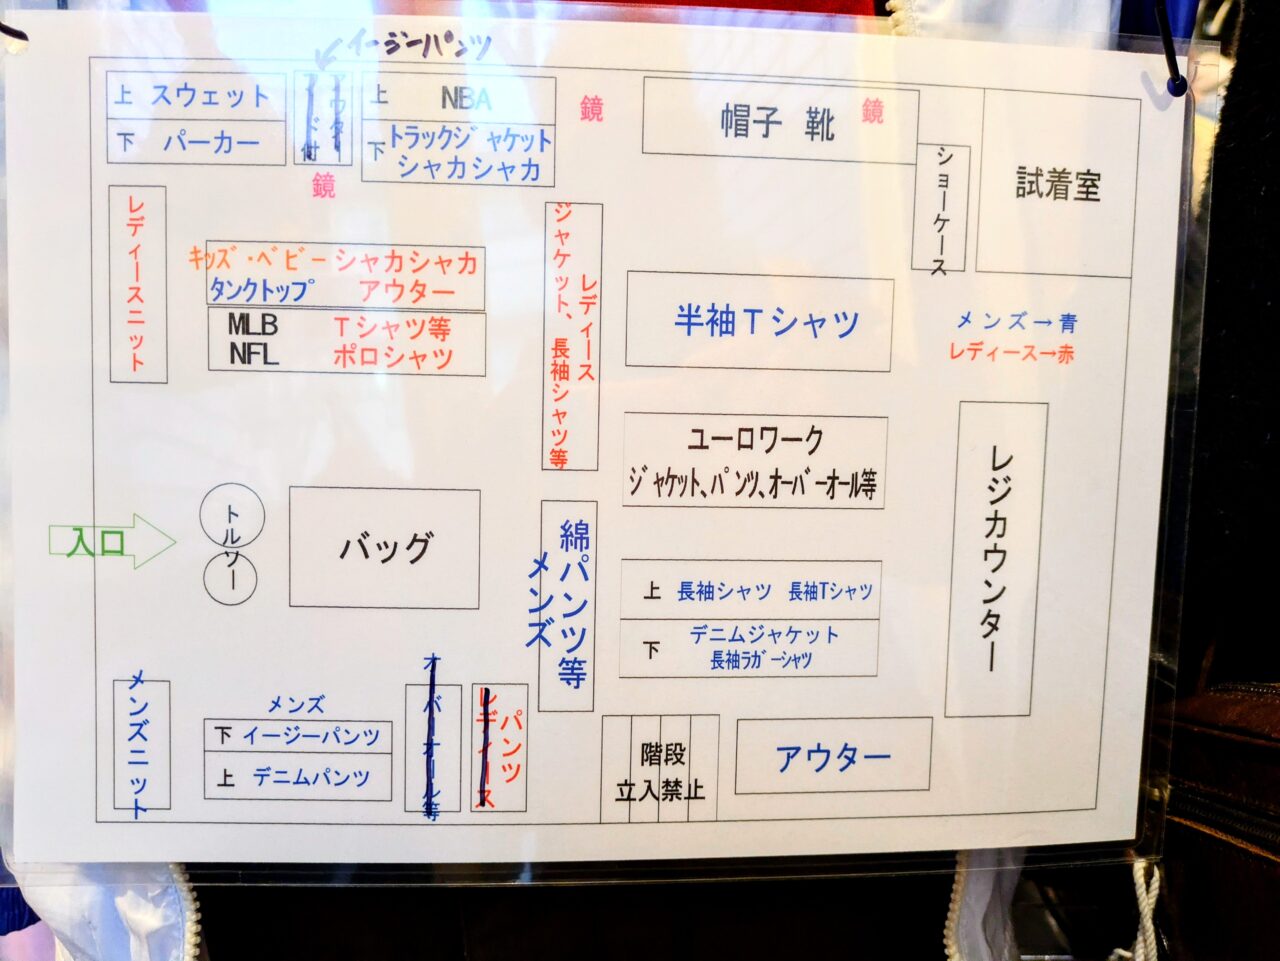 イージーパンツ
上 スウェット
下 パーカー
上 NBA
下 トラックジャケット
シャカシャカ
鏡
鏡
帽子 靴
鏡
ショーケース
試着室
レディースニット
キッズ・ベビー シャカシャカ
タンクトップ アウター
MLB Tシャツ等
NFL ポロシャツ
レディース
ジャケット、長袖シャツ等
半袖Tシャツ
メンズ→青
レディース→赤
ユーロワーク
ジャケット、パンツ、オーバーオール等
レジカウンター
入口
トルソー
バッグ
メンズ
綿パンツ等
上 長袖シャツ 長袖Tシャツ
下 デニムジャケット
長袖ラガーシャツ
メンズニット
メンズ
下 イージーパンツ
上 デニムパンツ
オーバーオール等
レディース
パンツ
階段
立入禁止
アウター